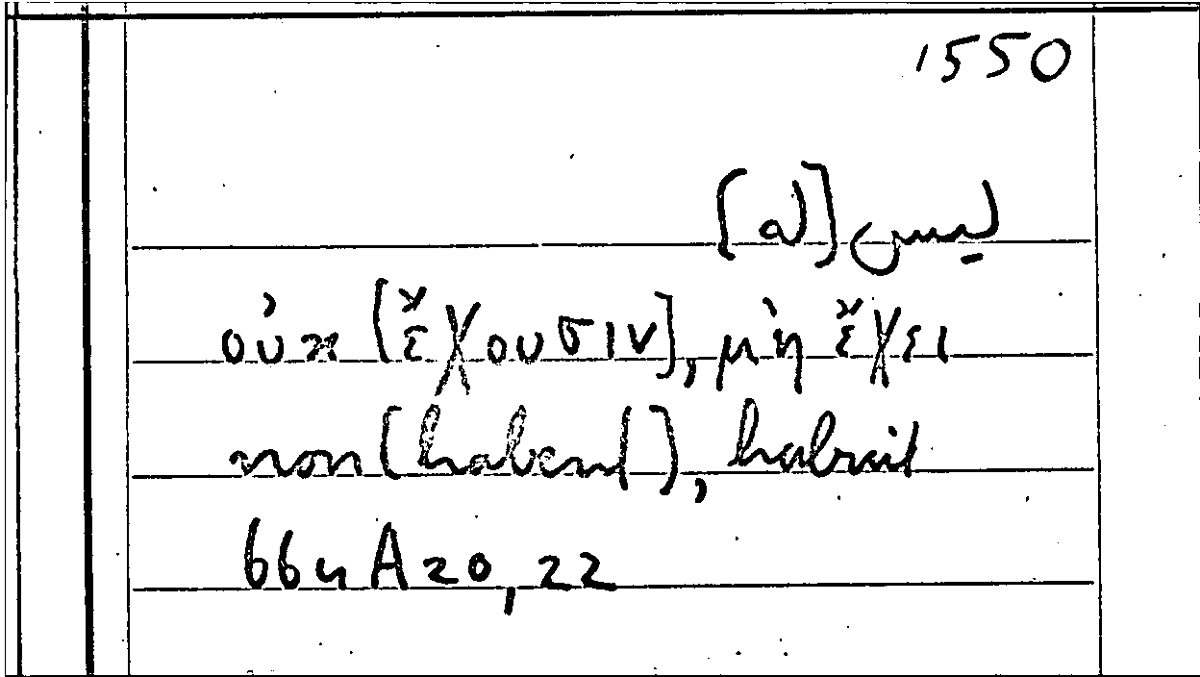 1550
ليس [له]
οὐκ [ἔχουσιν], μὴ ἔχει
non (habent), habuit
664 A 20, 22